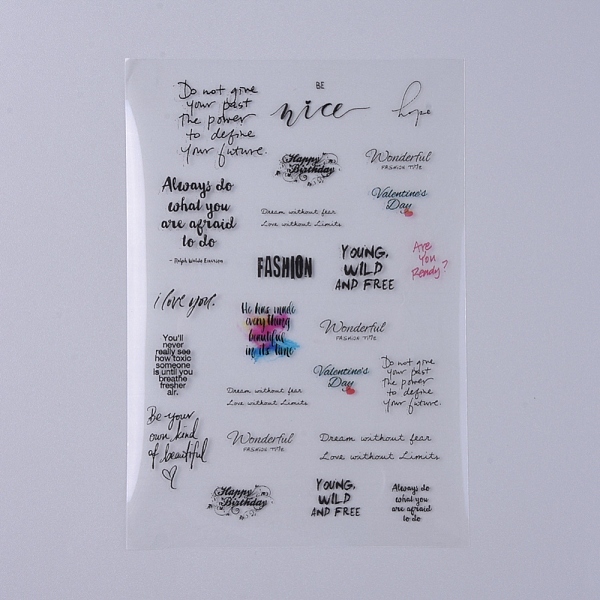 Do not give
your past
the power
to define
your future.
BE
nice
hope
Happy
Birthday
Wonderful
FASHION TIME
Always do
what you
are afraid
to do
- Ralph Waldo Emerson
Valentine's
Day
Dream without fear
Love without Limits
FASHION
YOUNG,
WILD
AND FREE
Are
You
Ready?
i love you.
He has made
everything
beautiful
in its time
Wonderful
FASHION TIME
You'll
never
really see
how toxic
someone
is until you
breathe
fresher
air.
Valentine's
Day
Do not give
your past
the power
to define
your future.
Dream without fear
Love without Limits
Be your
own kind
of beautiful
Wonderful
FASHION TIME
Dream without fear
Love without Limits
Happy
Birthday
YOUNG,
WILD
AND FREE
Always do
what you
are afraid
to do